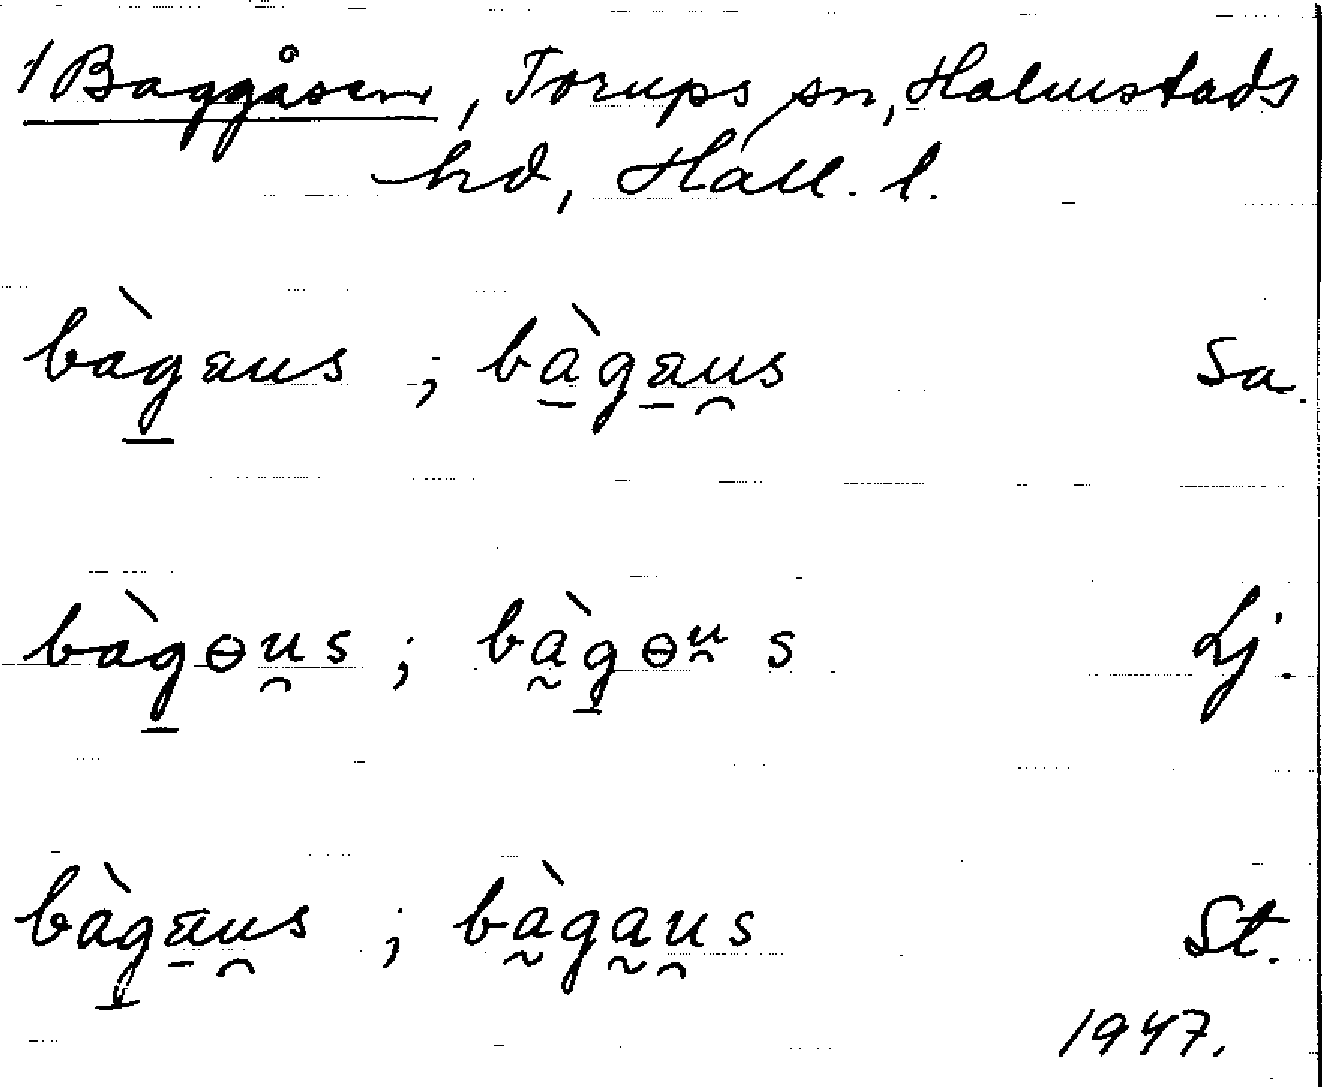 1 Baggåsen, Torups sn, Halmstads
hd, Hall. l.
bàgaus ; bàgaus Sa.
bàgɵus ; bàgɵᵘs Lj.
bàgaus ; bàgaus St.
1947.